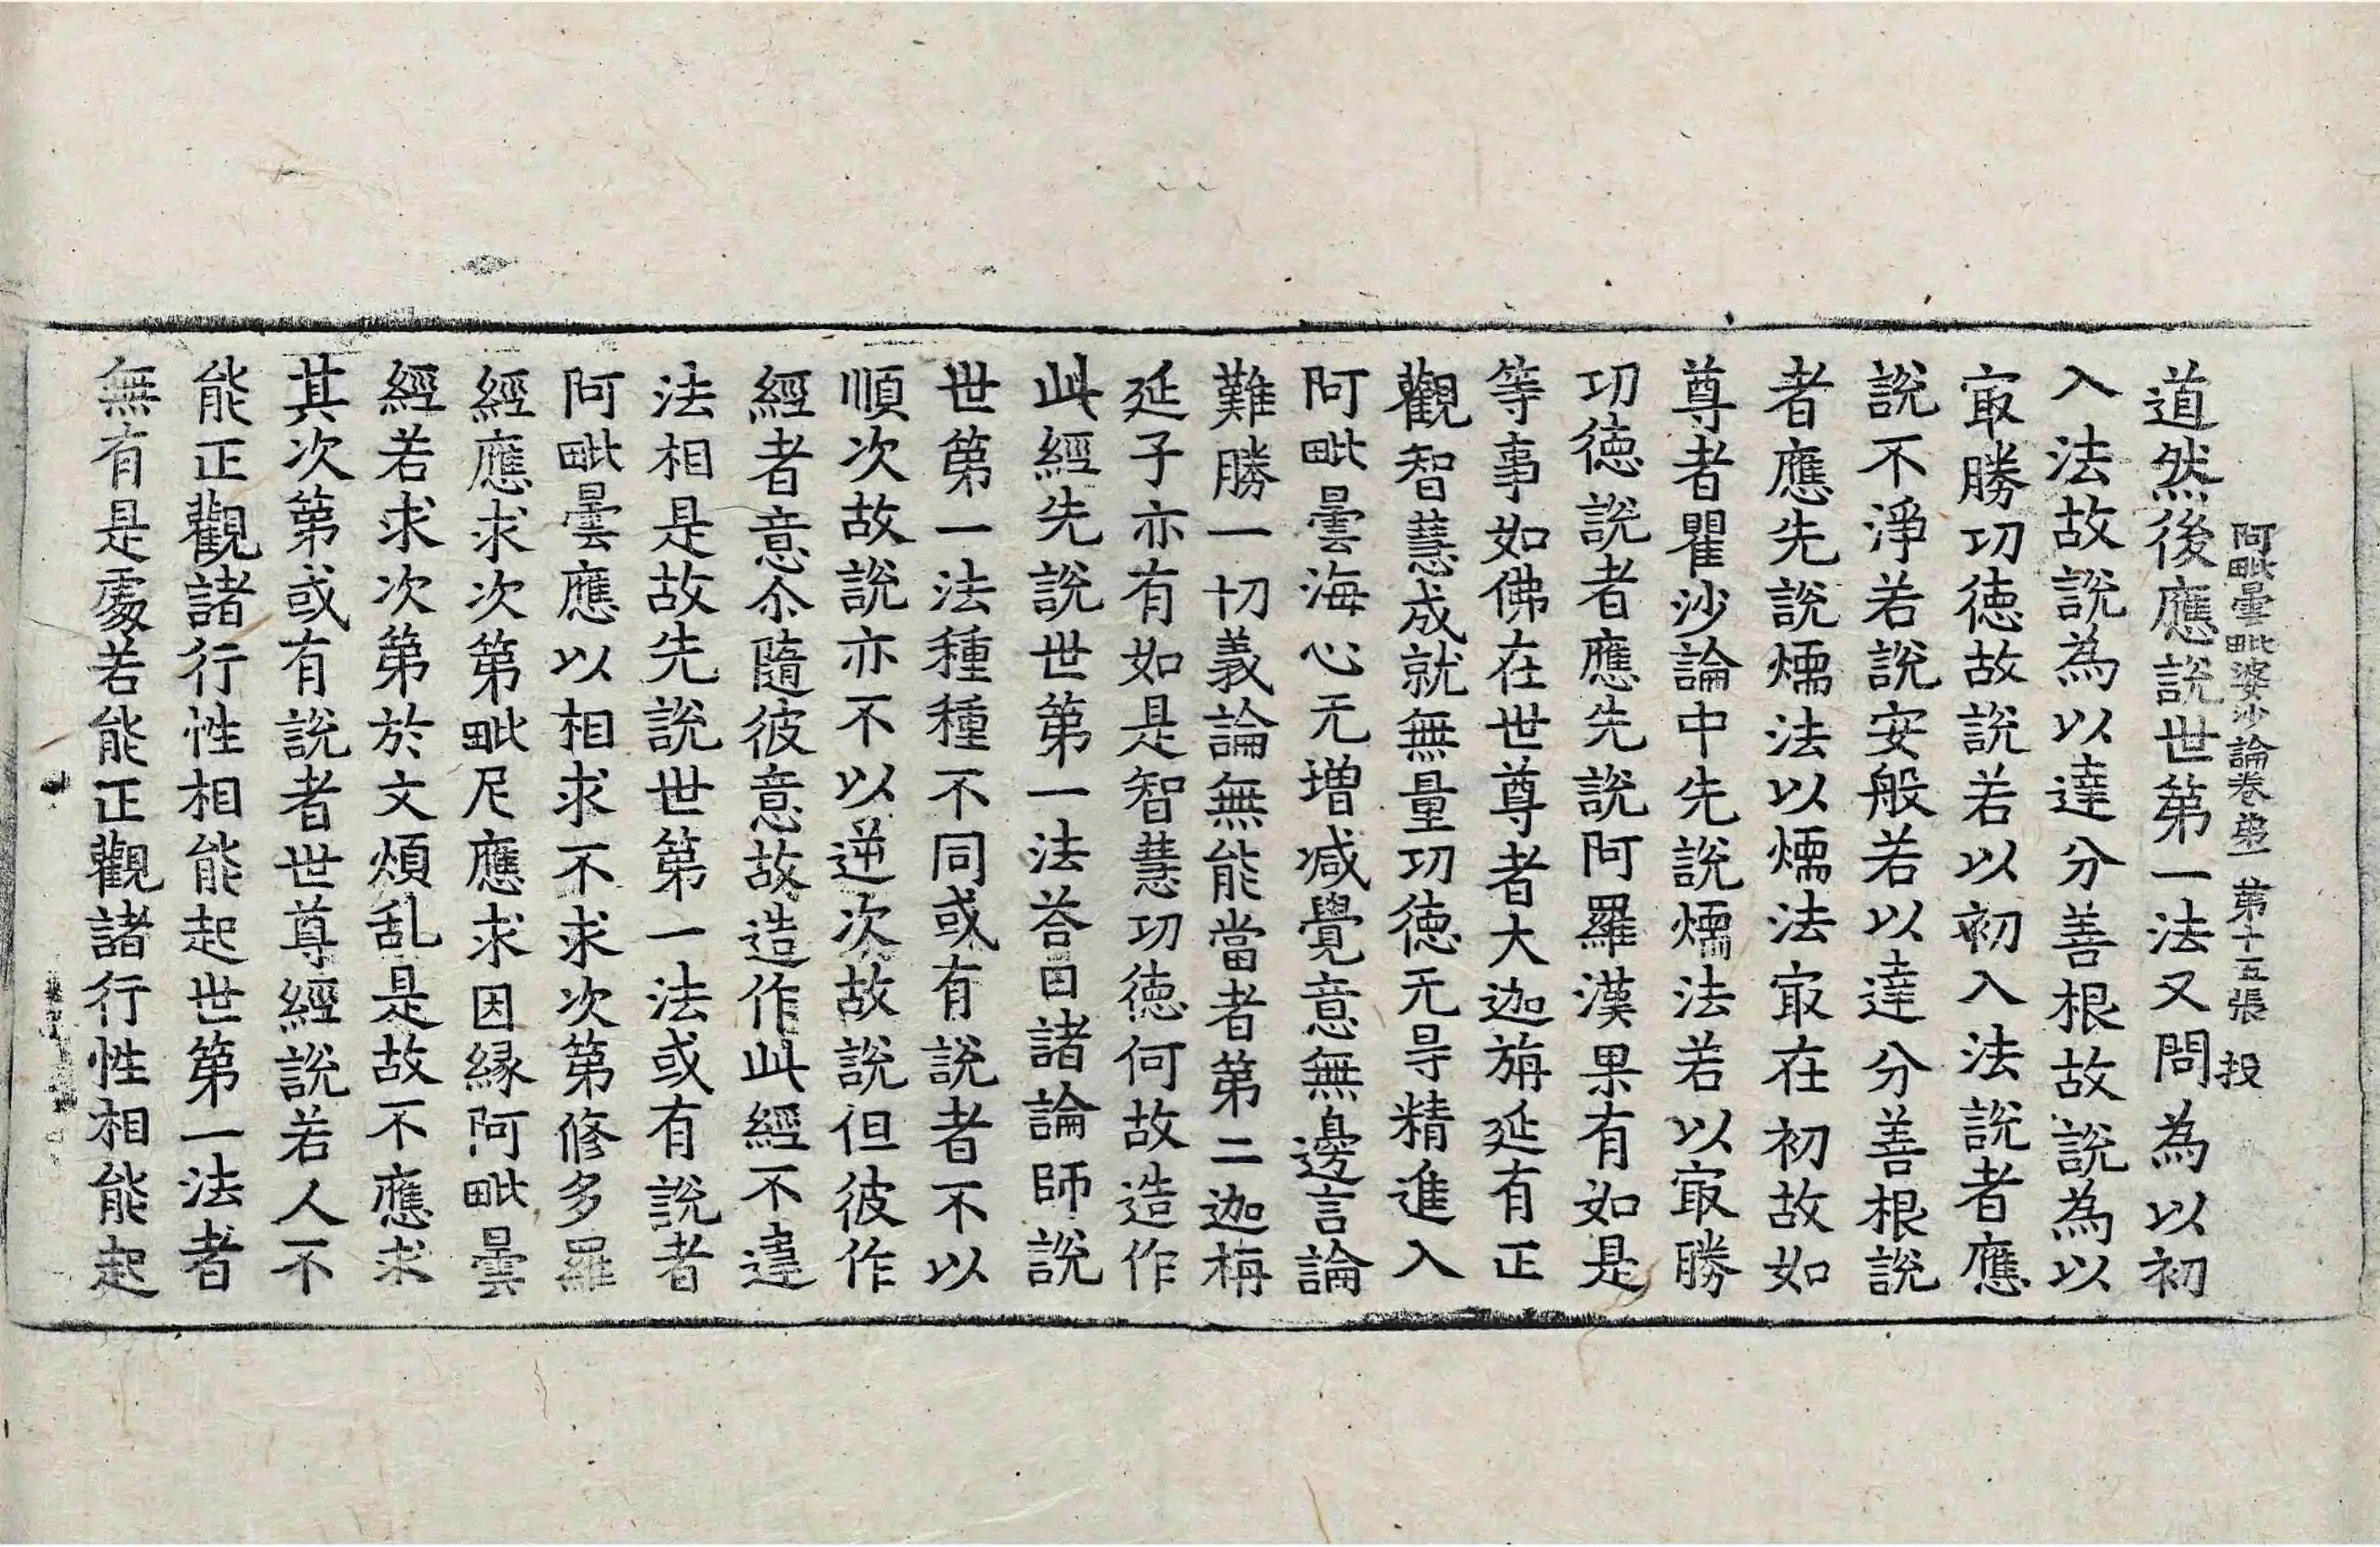 阿毗曇毗婆沙論卷第一 第十五張 投
道然後應說世第一法又問為以初
入法故說為以達分善根故說為以
冣勝功徳故說若以初入法說者應
說不淨若說安般若以達分善根說
者應先說燸法以燸法冣在初故如
尊者瞿沙論中先說燸法若以冣勝
功徳說者應先說阿羅漢果有如是
等事如佛在世尊者大迦旃延有正
觀智慧成就無量功徳无㝵精進入
阿毗曇海心无增减覺意無邊言論
難勝一切義論無能當者第二迦栴
延子亦有如是智慧功徳何故造作
此經先說世第一法荅曰諸論師說
世第一法種種不同或有說者不以
順次故說亦不以逆次故說但彼作
經者意尒隨彼意故造作此經不違
法相是故先說世第一法或有說者
阿毗曇應以相求不求次第修多羅
經應求次第毗尼應求因縁阿毗曇
經若求次第於文煩乱是故不應求
其次第或有說者世尊經說若人不
能正觀諸行性相能起世第一法者
無有是處若能正觀諸行性相能起